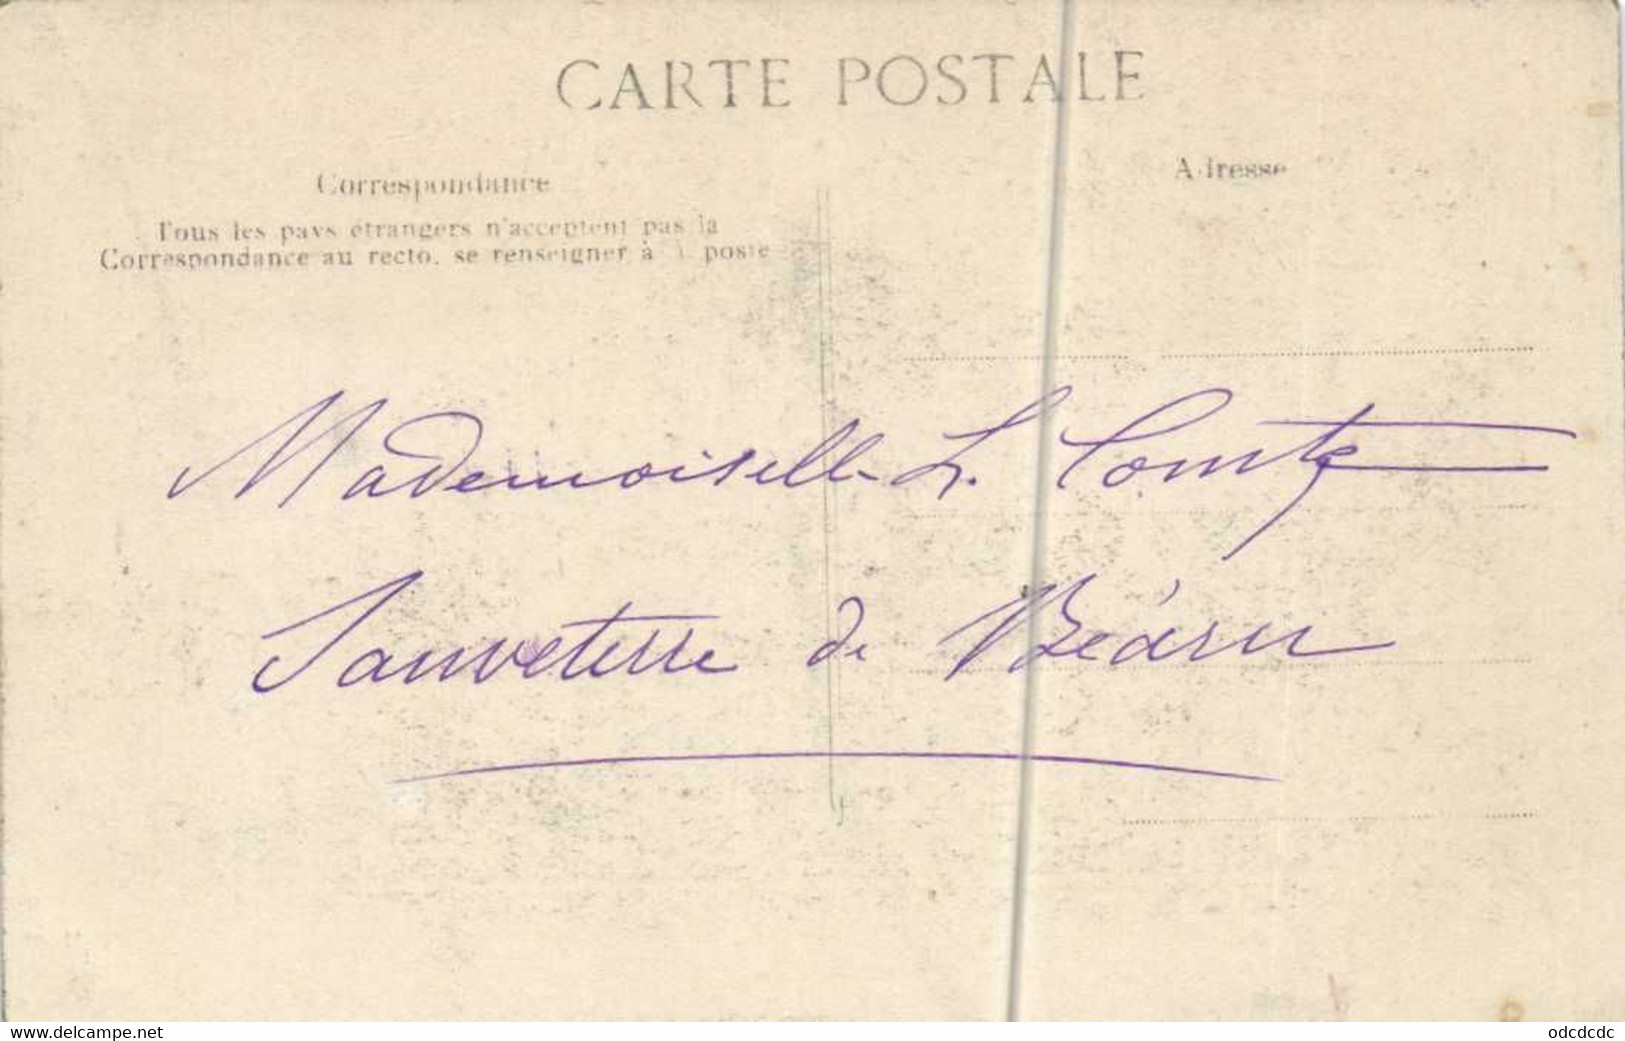 CARTE POSTALE
Correspondance
Adresse
Tous les pays étrangers n'acceptent pas la
Correspondance au recto, se renseigner à la poste
Mademoiselle L. Comte
Sauveterre de Béarn
www.delcampe.net
odcdcdc